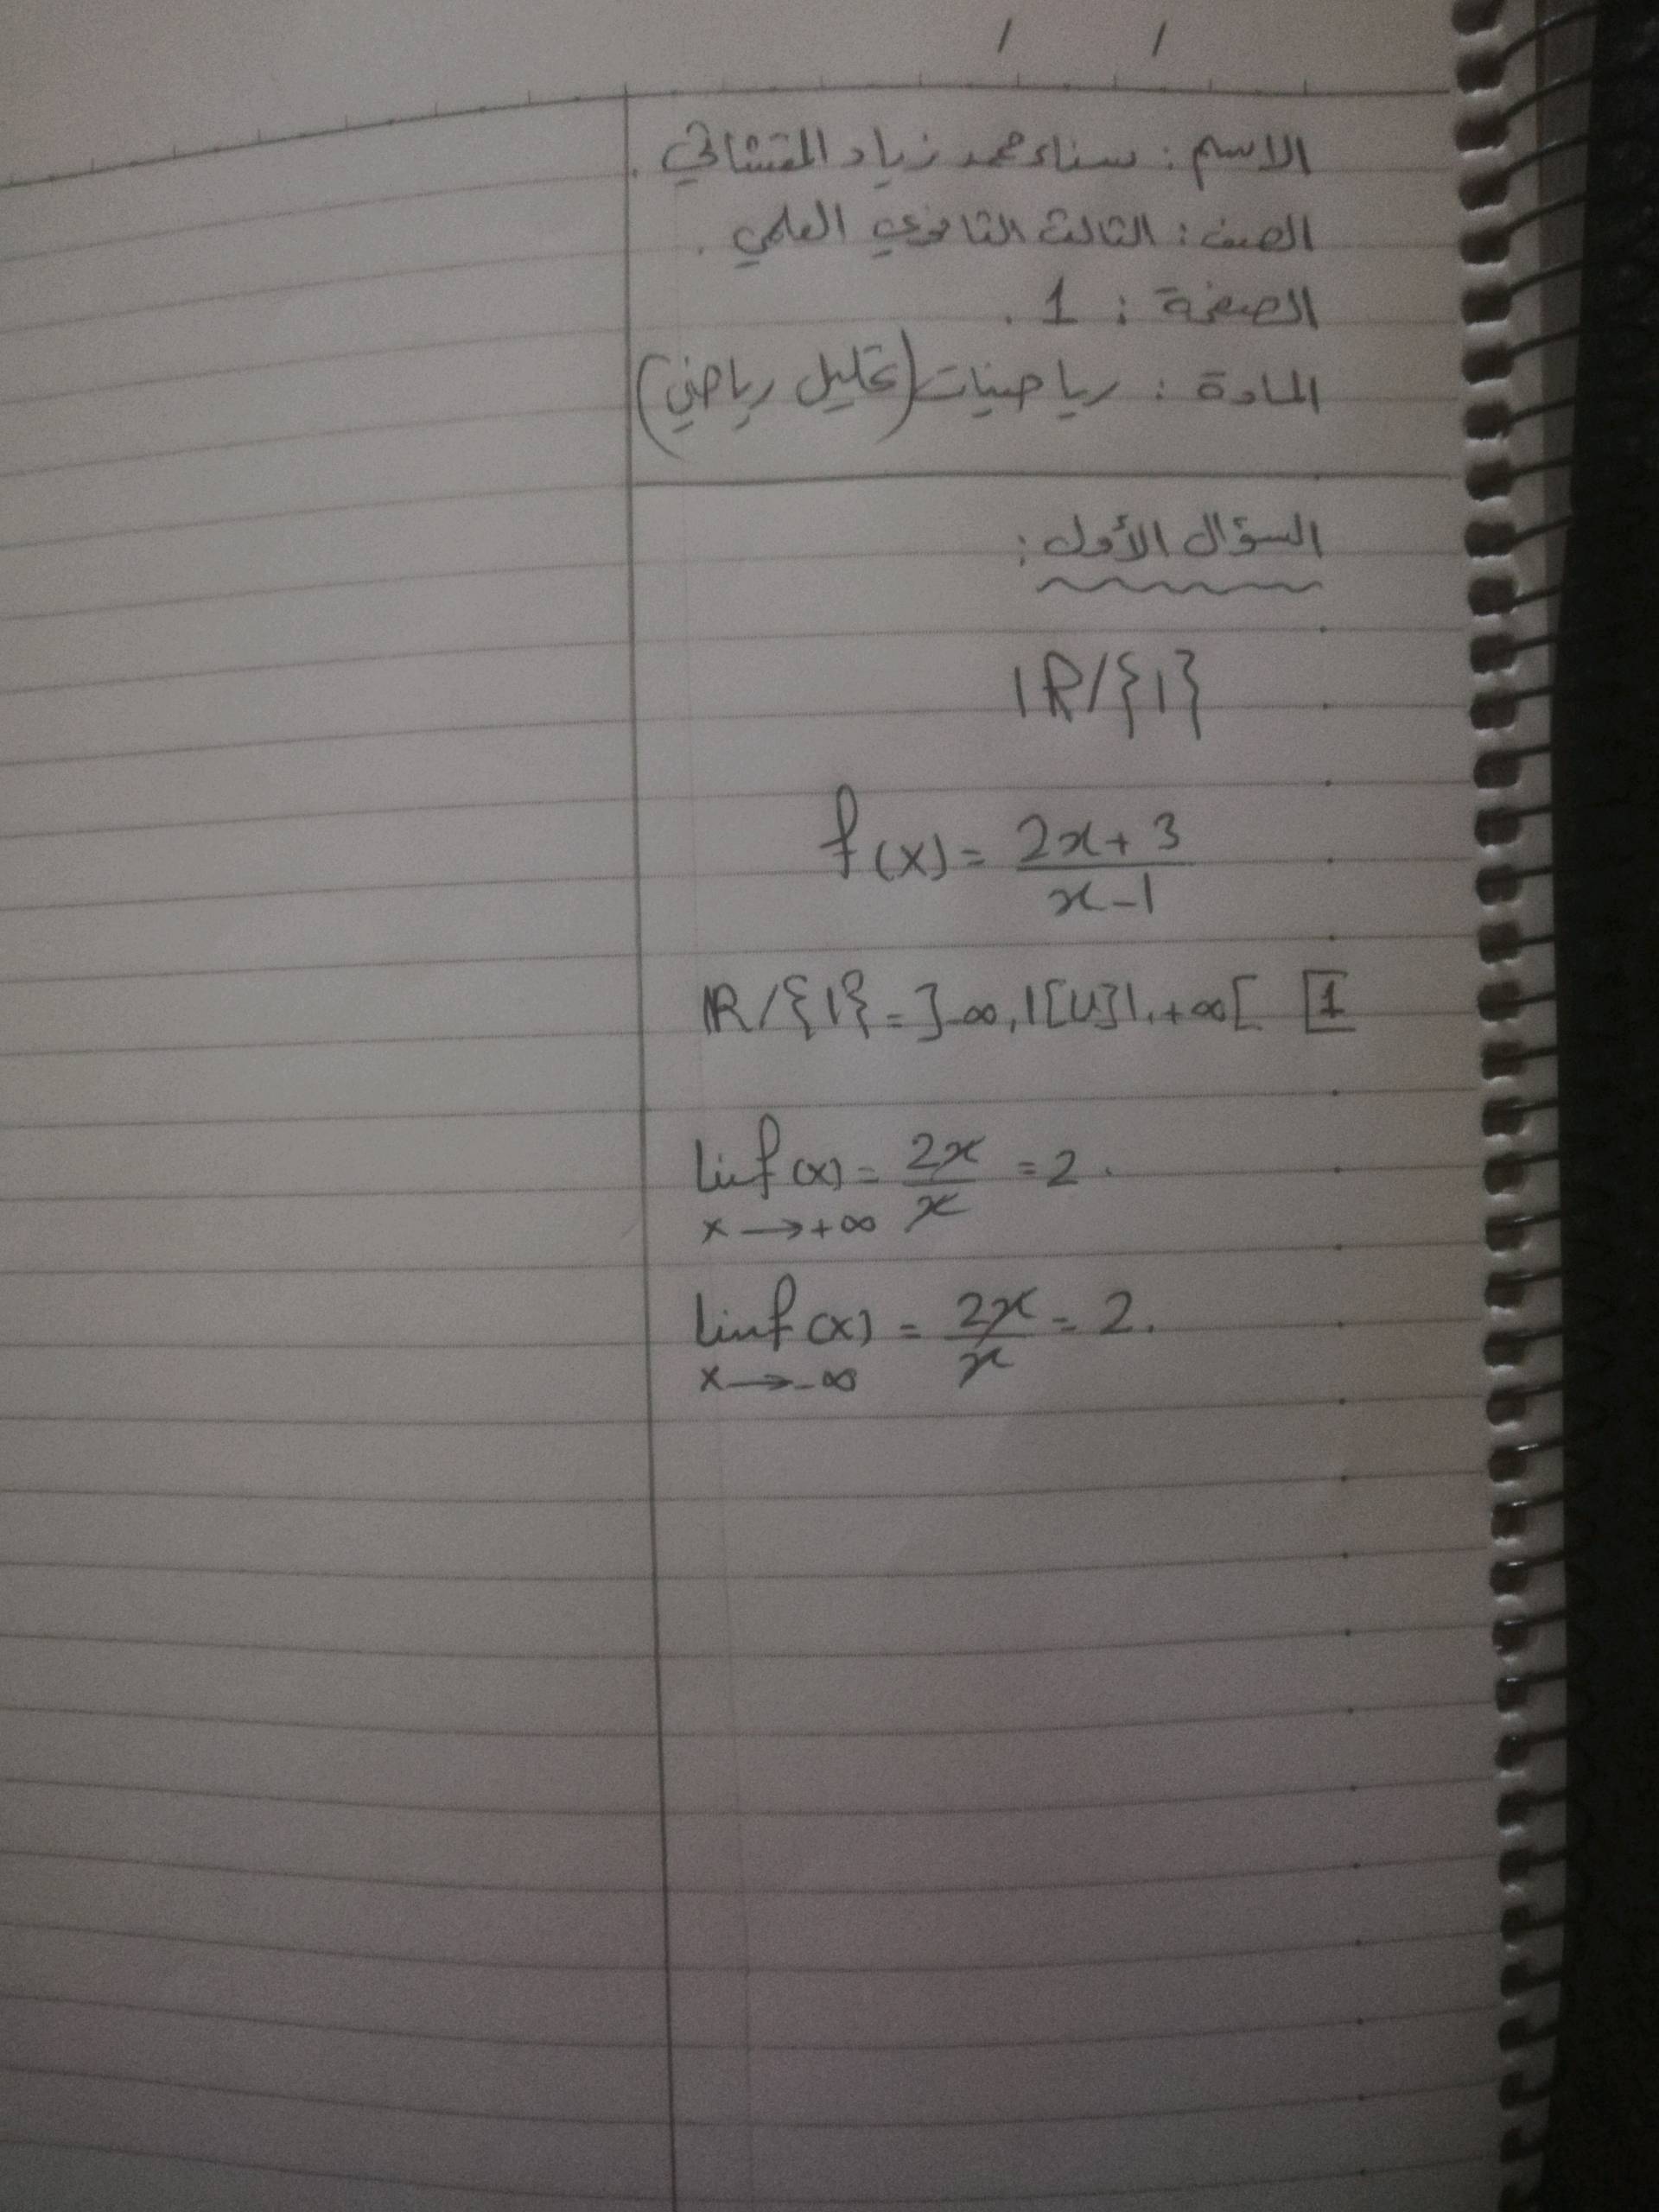 الاسم : سناء محمد زياد المقشاتي .
الصف : الثالث الثانوي العلمي .
الصفحة : 1 .
المادة : رياضيات (تحليل رياضي)
السؤال الأول :
IR/{1}
f(x) = 2x+3 / x-1
1 IR/{1} = ]-∞,1[U]1,+∞[
lim f(x) = 2x / x = 2 .
x → +∞
lim f(x) = 2x / x = 2 .
x → -∞